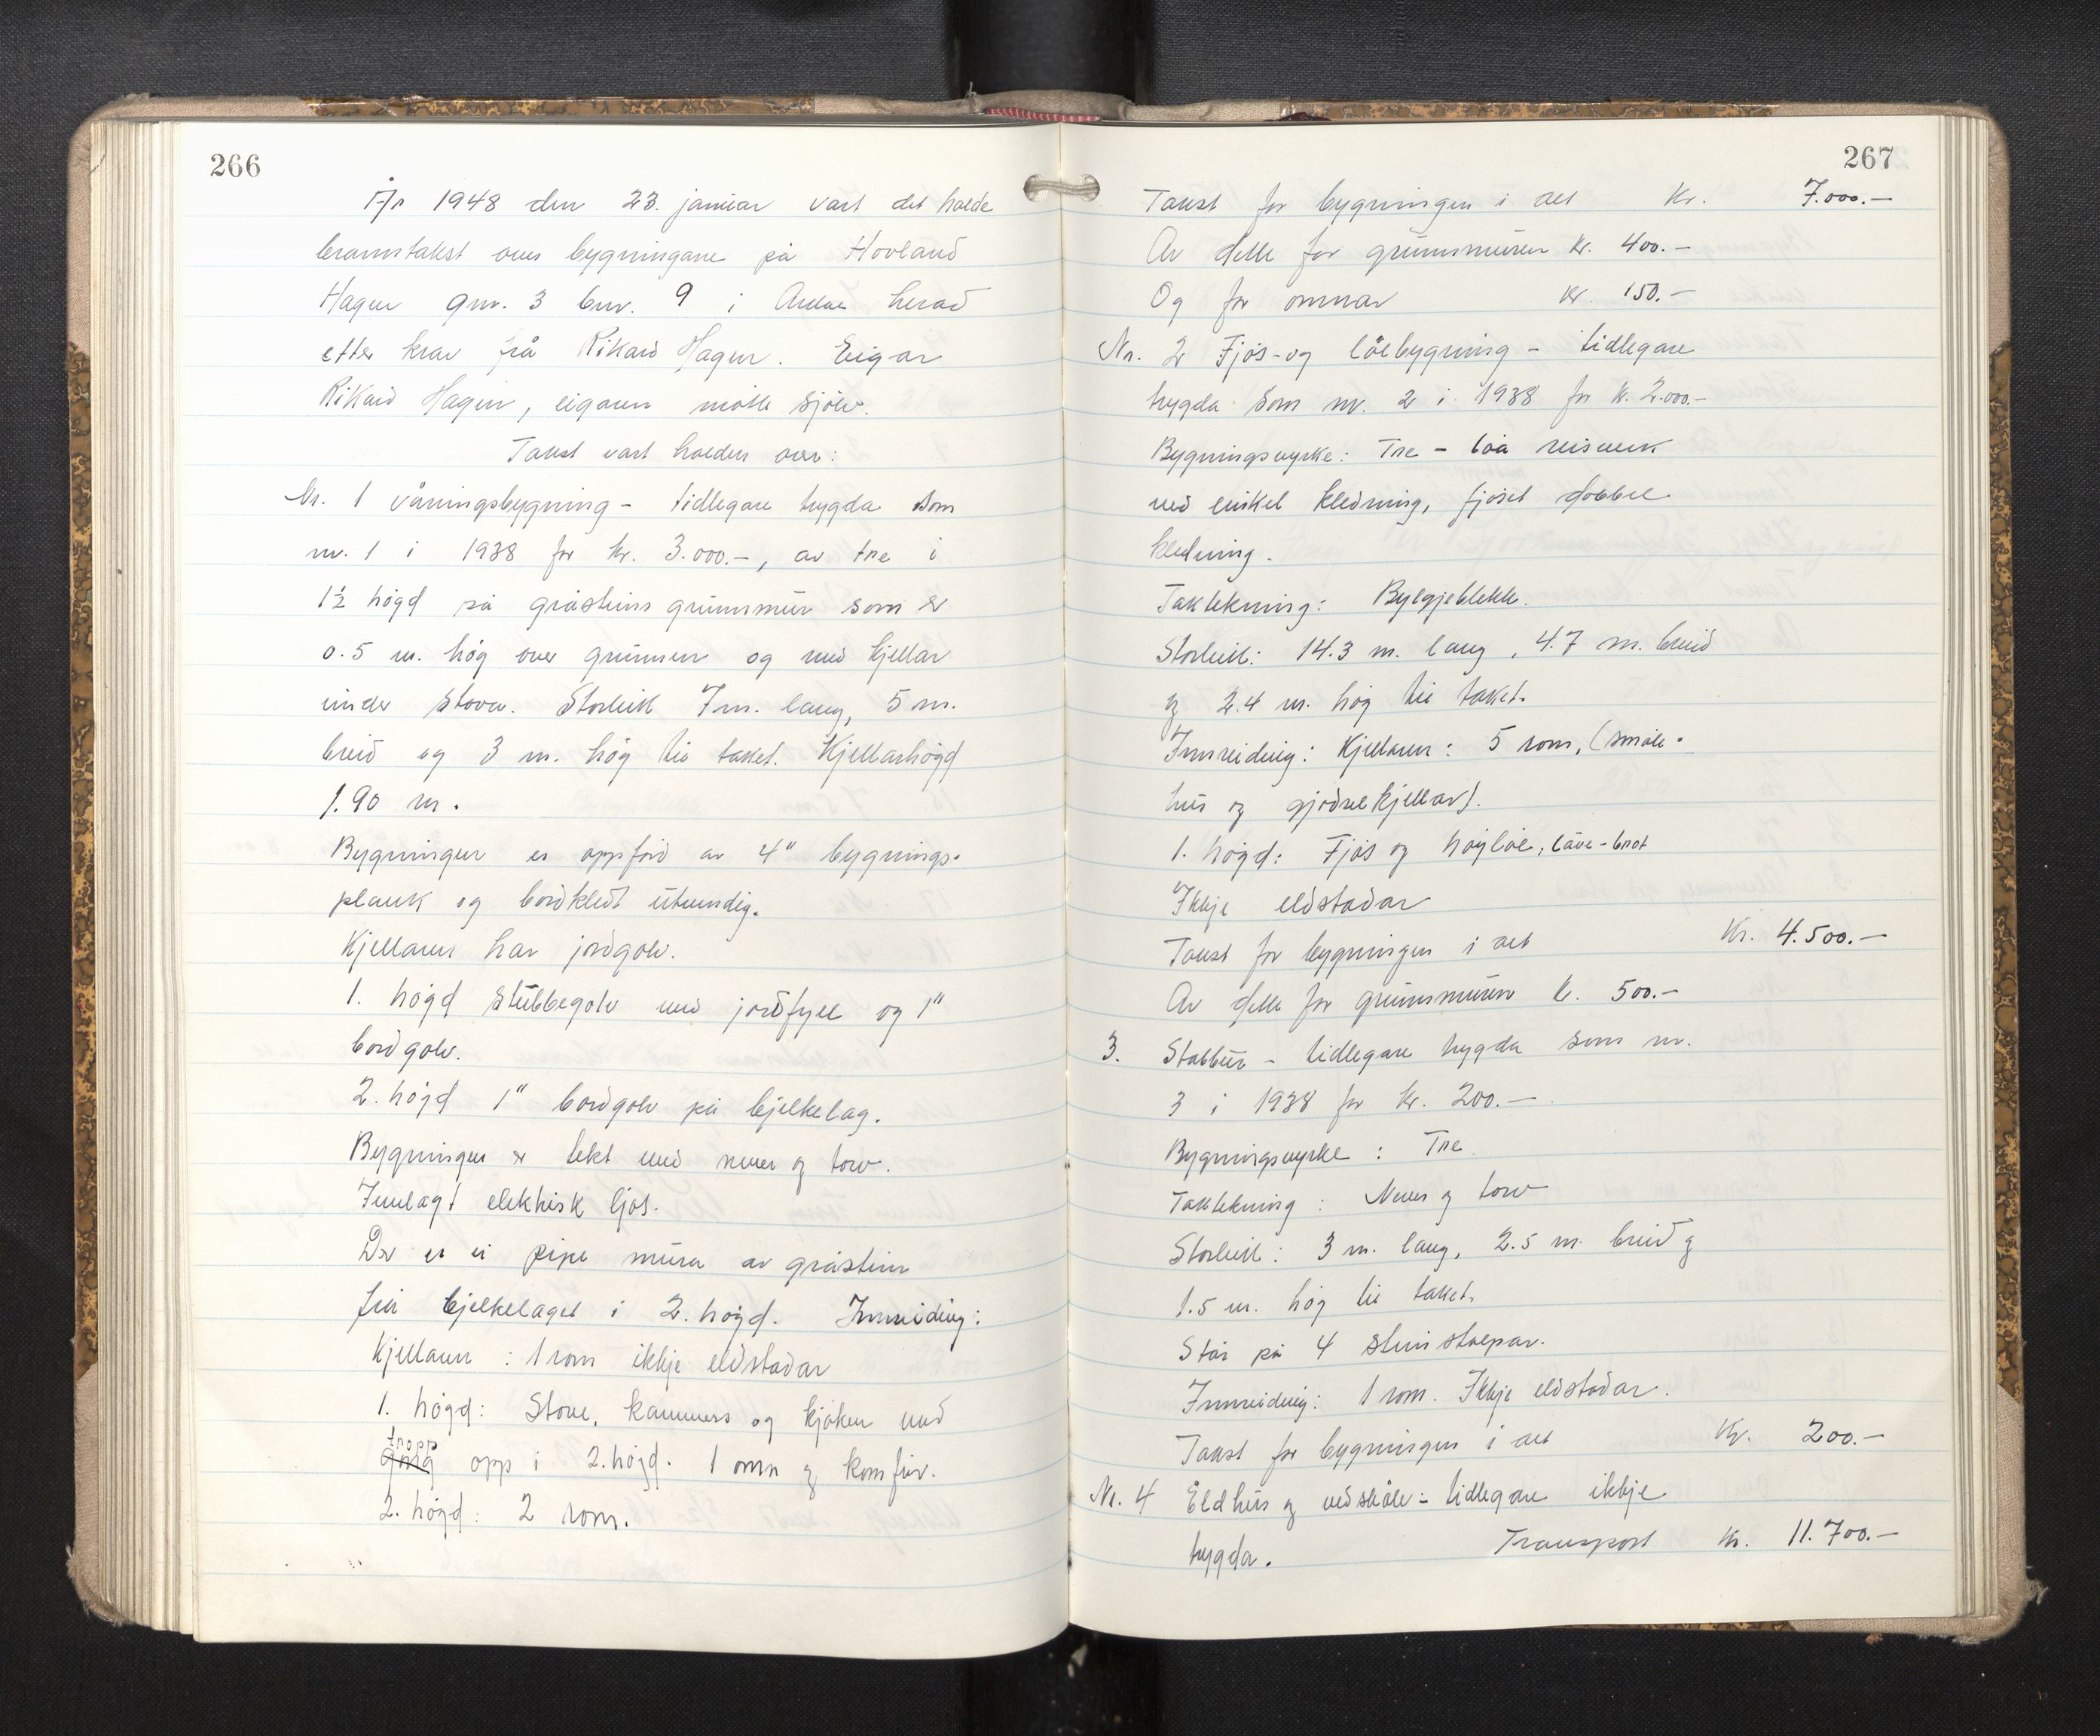 266
År 1948 den 23. januar vart det halde
branntakst over bygningane på Hovland
Hagen gnr. 3 bnr. 9 i herad
etter krav frå Rikard Hagen. Eigar
Rikard Hagen, eigaren møtte sjølv.
Takst vart halden over:
Nr. 1 Våningsbygning - tidlegare trygda som
nr. 1 i 1938 for kr. 3.000.-, av tre i
1½ høgd på gråsteins grunnmur som er
0.5 m. høg over grunnen og med kjellar
under stova. Storleik 7 m. lang, 5 m.
breid og 3 m. høg til taket. Kjellarhøgd
1.90 m.
Bygningen er oppførd av 4" bygnings-
plank og bordkledt utvendig.
Kjellaren har jordgolv.
1. høgd stubbegolv med jordfyll og 1"
bordgolv.
2. høgd 1" bordgolv på bjelkelag.
Bygningen er tekt med never og torv.
Innlagt elektrisk ljos.
Der er ei pipe mura av gråstein
frå bjelkelaget i 2. høgd. Innreiding:
Kjellaren : 1 rom ikkje eldstadar
1. høgd: Stove, kammers og kjøken med
tropp
gang opp i 2. høgd. 1 omn og komfyr.
2. høgd: 2 rom.
267
Takst for bygningen i alt Kr. 7.000.-
Av dette for grunnmuren Kr. 400.-
Og for omnar kr. 150.-
Nr. 2 Fjøs- og løebygning - tidlegare
trygda som nr. 2 i 1938 for kr. 2.000.-
Bygningsvyrke: Tre - løa reisverk
med enkel kledning, fjøset dobbel
kledning.
Taktekning: Bylgjeblekk.
Storleik: 14.3 m. lang, 4.7 m. breid
og 2.4 m. høg til taket.
Innreiding: Kjellaren: 5 rom, (småle-
hus og gjødselkjellar).
1. høgd: Fjøs og høyløe, låve-brot
Ikkje eldstadar
Takst for bygningen i alt Kr. 4.500.-
Av dette for grunnmuren kr. 500.-
3. Stabbur - tidlegare trygda som nr.
3 i 1938 for kr. 200.-
Bygningsvyrke : Tre
Taktekning : Never og torv
Storleik: 3 m. lang, 2.5 m. breid og
1.5 m. høg til taket.
Står på 4 steinstolpar.
Innreiding: 1 rom. Ikkje eldstadar.
Takst for bygningen i alt Kr. 200.-
Nr. 4 Eldhus og vedskåle - tidlegare ikkje
trygda. Transport Kr. 11.700.-